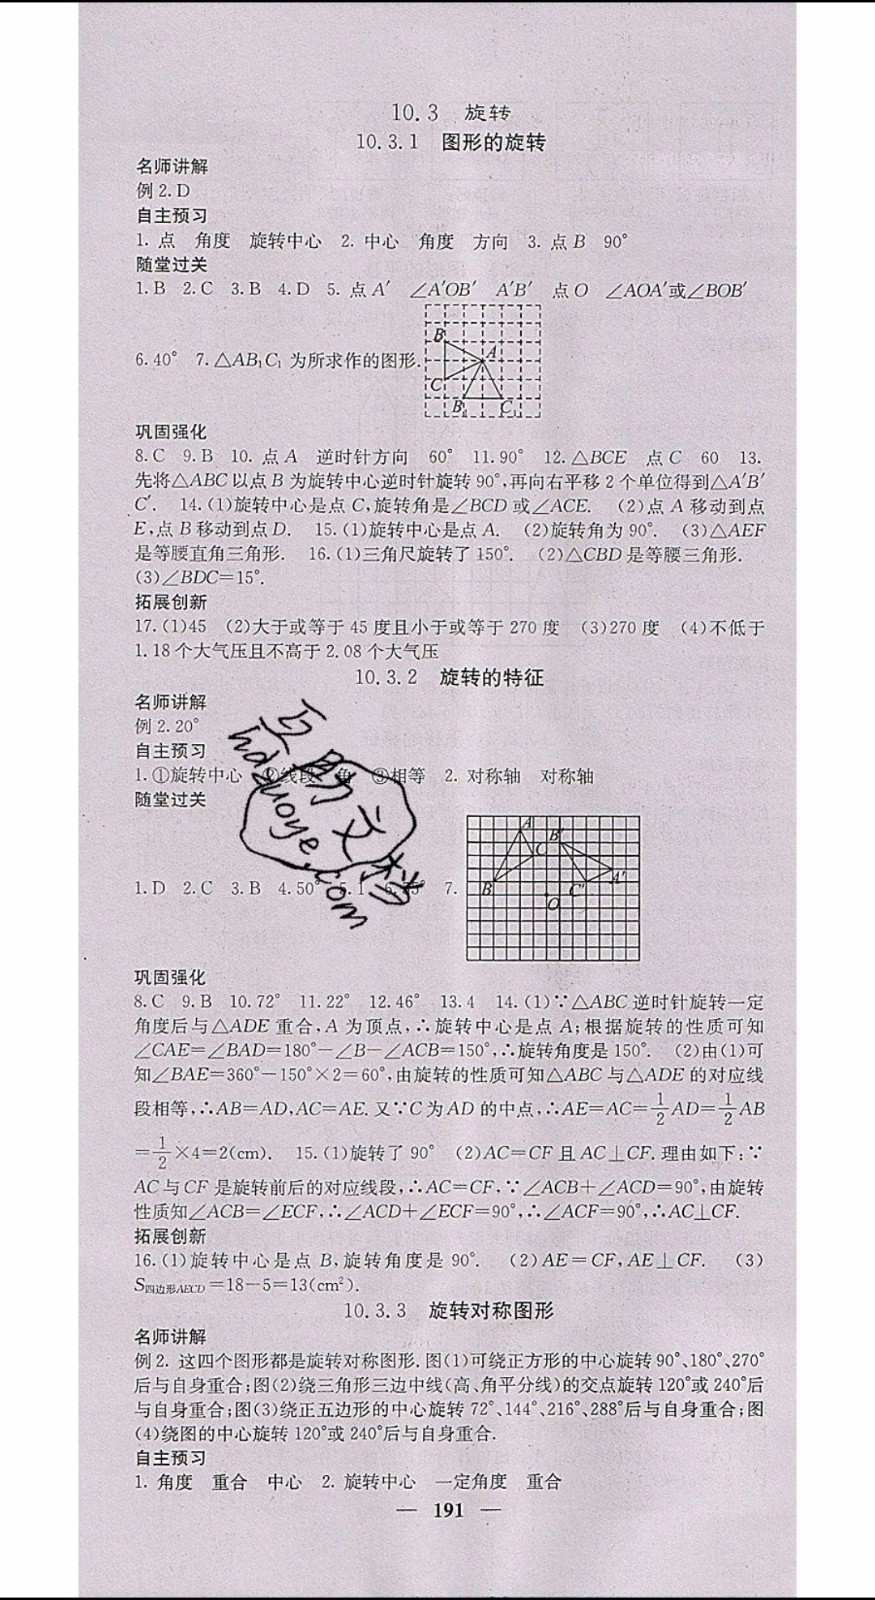 10.3 旋转
10.3.1 图形的旋转
名师讲解
例 2.D
自主预习
1. 点 角度 旋转中心 2. 中心 角度 方向 3. 点 B 90°
随堂过关
1.B 2.C 3.B 4.D 5. 点 A′ ∠A′OB′ A′B′ 点 O ∠AOA′或∠BOB′
6.40° 7.△AB₁C₁ 为所求作的图形.
B
A
C
B₁
C₁
巩固强化
8.C 9.B 10. 点 A 逆时针方向 60° 11.90° 12.△BCE 点 C 60 13.
先将△ABC 以点 B 为旋转中心逆时针旋转 90°,再向右平移 2 个单位得到△A′B′
C′. 14.(1)旋转中心是点 C,旋转角是∠BCD 或∠ACE. (2)点 A 移动到点
E,点 B 移动到点 D. 15.(1)旋转中心是点 A. (2)旋转角为 90°. (3)△AEF
是等腰直角三角形. 16.(1)三角尺旋转了 150°. (2)△CBD 是等腰三角形.
(3)∠BDC=15°.
拓展创新
17.(1)45 (2)大于或等于 45 度且小于或等于 270 度 (3)270 度 (4)不低于
1.18 个大气压且不高于 2.08 个大气压
10.3.2 旋转的特征
名师讲解
例 2.20°
自主预习
1.①旋转中心 ②线段 角 ③相等 2. 对称轴 对称轴
随堂过关
1.D 2.C 3.B 4.50° 5.1 7.
A
B′
C
B
C′
A′
O
互助文档
hdzuoye.com
巩固强化
8.C 9.B 10.72° 11.22° 12.46° 13.4 14.(1)∵△ABC 逆时针旋转一定
角度后与△ADE 重合,A 为顶点,∴旋转中心是点 A;根据旋转的性质可知
∠CAE=∠BAD=180°-∠B-∠ACB=150°,∴旋转角度是 150°. (2)由(1)可
知∠BAE=360°-150°×2=60°,由旋转的性质可知△ABC 与△ADE 的对应线
段相等,∴AB=AD,AC=AE.又∵C 为 AD 的中点,∴AE=AC=1/2AD=1/2AB
=1/2×4=2(cm). 15.(1)旋转了 90° (2)AC=CF 且 AC⊥CF.理由如下:∵
AC 与 CF 是旋转前后的对应线段,∴AC=CF,∵∠ACB+∠ACD=90°,由旋转
性质知∠ACB=∠ECF,∴∠ACD+∠ECF=90°,∴∠ACF=90°,∴AC⊥CF.
拓展创新
16.(1)旋转中心是点 B,旋转角度是 90°. (2)AE=CF,AE⊥CF. (3)
S四边形AECD=18-5=13(cm²).
10.3.3 旋转对称图形
名师讲解
例 2. 这四个图形都是旋转对称图形.图(1)可绕正方形的中心旋转 90°、180°、270°
后与自身重合;图(2)绕三角形三边中线(高、角平分线)的交点旋转 120°或 240°后
与自身重合;图(3)绕正五边形的中心旋转 72°、144°、216°、288°后与自身重合;图
(4)绕图的中心旋转 120°或 240°后与自身重合.
自主预习
1. 角度 重合 中心 2. 旋转中心 一定角度 重合
— 191 —